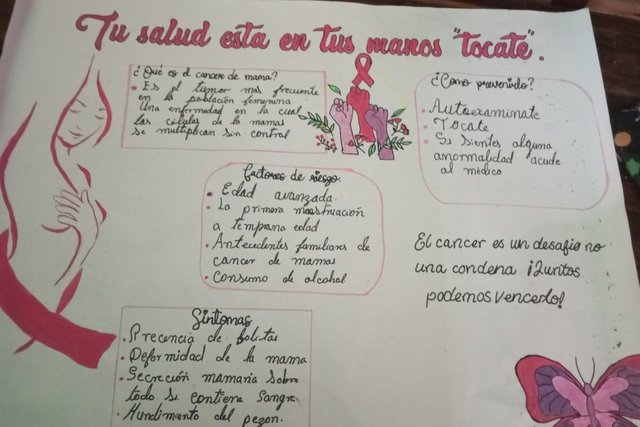 Tu salud esta en tus manos "tocate".
¿Qué es el cancer de mama?
• Es el tumor mas frecuente
en la población femenina
Una enfermedad en la cual
las células de la mamas
se multiplican sin control
¿Como prevenirlo?
• Autoexaminate
• Tócate
• Si sientes alguna
anormalidad acude
al médico
Factores de riesgo:
• Edad avanzada.
• La primera menstruación
a temprana edad
• Antecedentes familiares de
cancer de mamas
• Consumo de alcohol
El cancer es un desafio no
una condena ¡Juntos
podemos vencerlo!
Sintomas
• Precencia de bolitas
• Deformidad de la mama
• Secreción mamaria sobre
todo si contiene sangre
• Hundimiento del pezon.